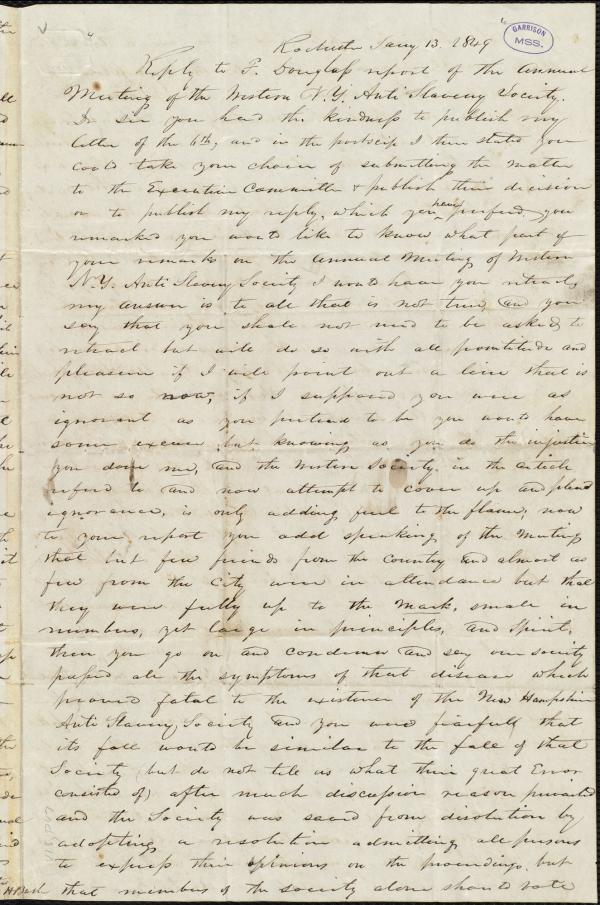 GARRISON
MSS.
Rochester Jany 13. 1849
Reply to F. Douglass report of the annual
Meeting of the Western N.Y. Anti Slavery Society.
Dr sir you had the kindness to publish my
letter of the 6th, and in the postscrip I then stated you
could take your choice of submitting the matter
to the Executive Committee & publish their decision
or to publish my reply, which you have prefered. you
remarked you would like to know what part of
your remarks on the annual Meeting of Western
N.Y. Anti Slavery Society I would have you retract,
my answer is to all that is not true, and you
say that you shall not need to be asked to
retract but will do so with all promtitude and
pleasure if I will point out a line that is
not so now, if I supposed you were as
ignorant as you pretend to be you would have
some excuse but knowing as you do the injustice
you done me, and the Western Society in the article
referd to and now attempt to cover up and plead
ignorance, is only adding fuel to the flame, now
to your report you add speaking of the Meeting
that but few friends from the Country and almost as
few from the City were in attendance but that
they were fully up to the mark, small in
numbers, yet large in principles, and Spirit,
then you go on and condemn and say our society
passed all the symptoms of that disease which
proved fatal to the existence of the New Hampshire
Anti Slavery Society and you were fearfull that
its fall would be similar to the fall of that
Society (but do not tell us what their great Error
consisted of) after much discussion reason prevailed
and the Society was saved from disolution by
adopting a resolution admitting all persons
to express their opinions on the proceedings but
that members of the society alone should vote